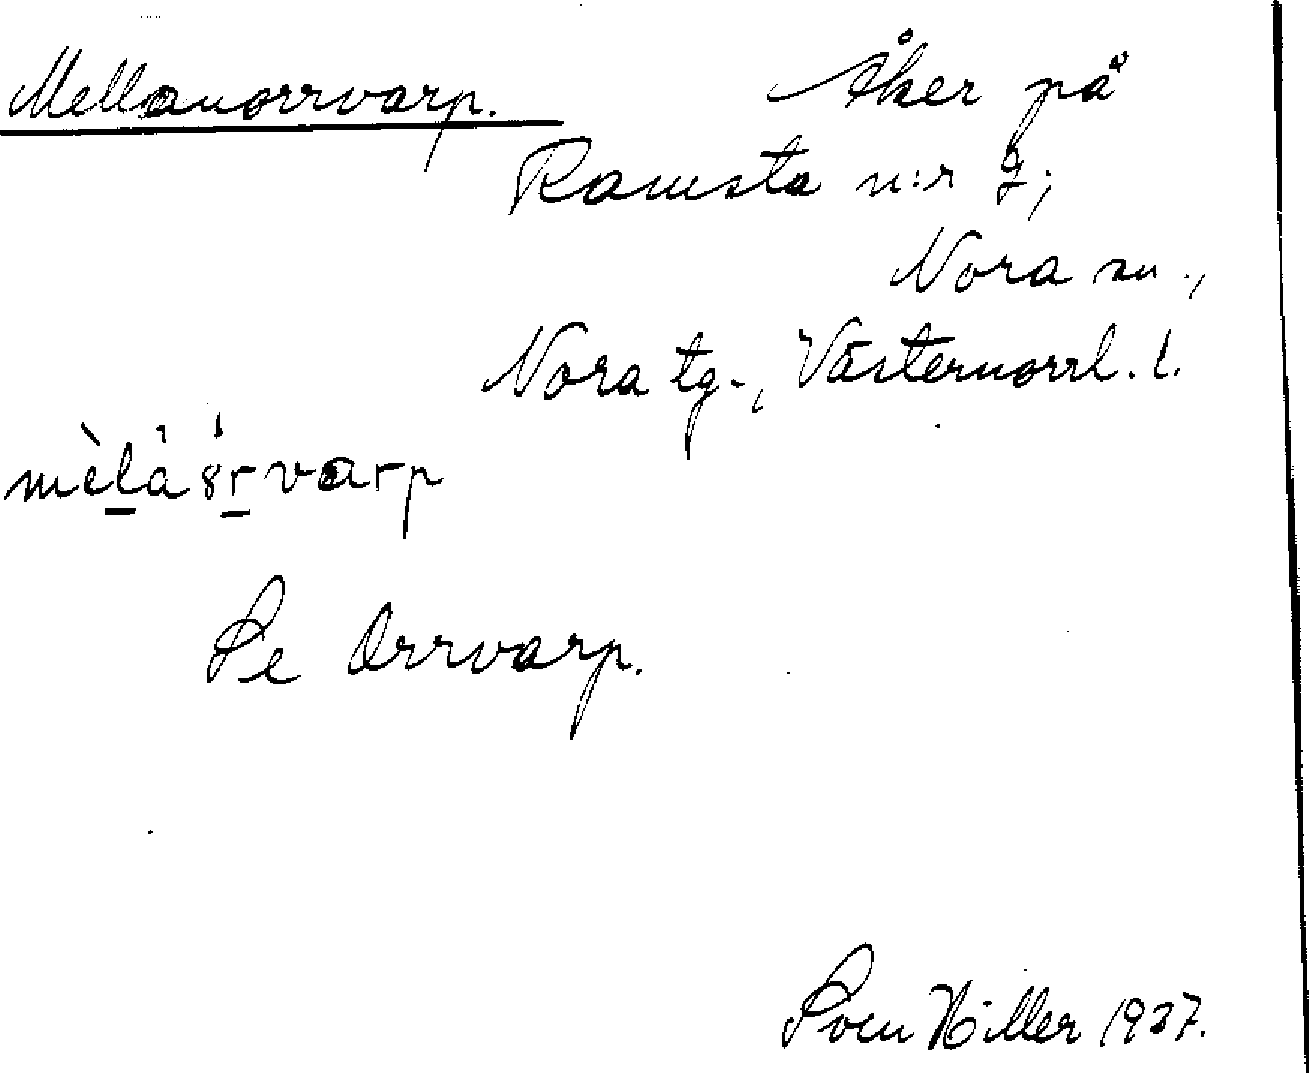 Mellanorrvarp. Åker på
Ramsta n:r 2;
Nora sn.,
Nora tg., Västernorrl. l.
mèla ȣrvarp
Se Orrvarp.
Sven Hiller 1937.